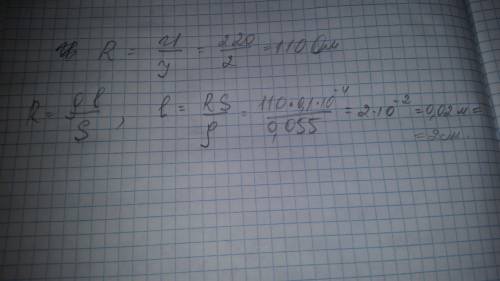 R = U/I = 220/2 = 110 Ом
R = ρl/S, l = RS/ρ = 110·0,1·10⁻⁴/0,055 = 2·10⁻² = 0,02 м =
= 2 см.